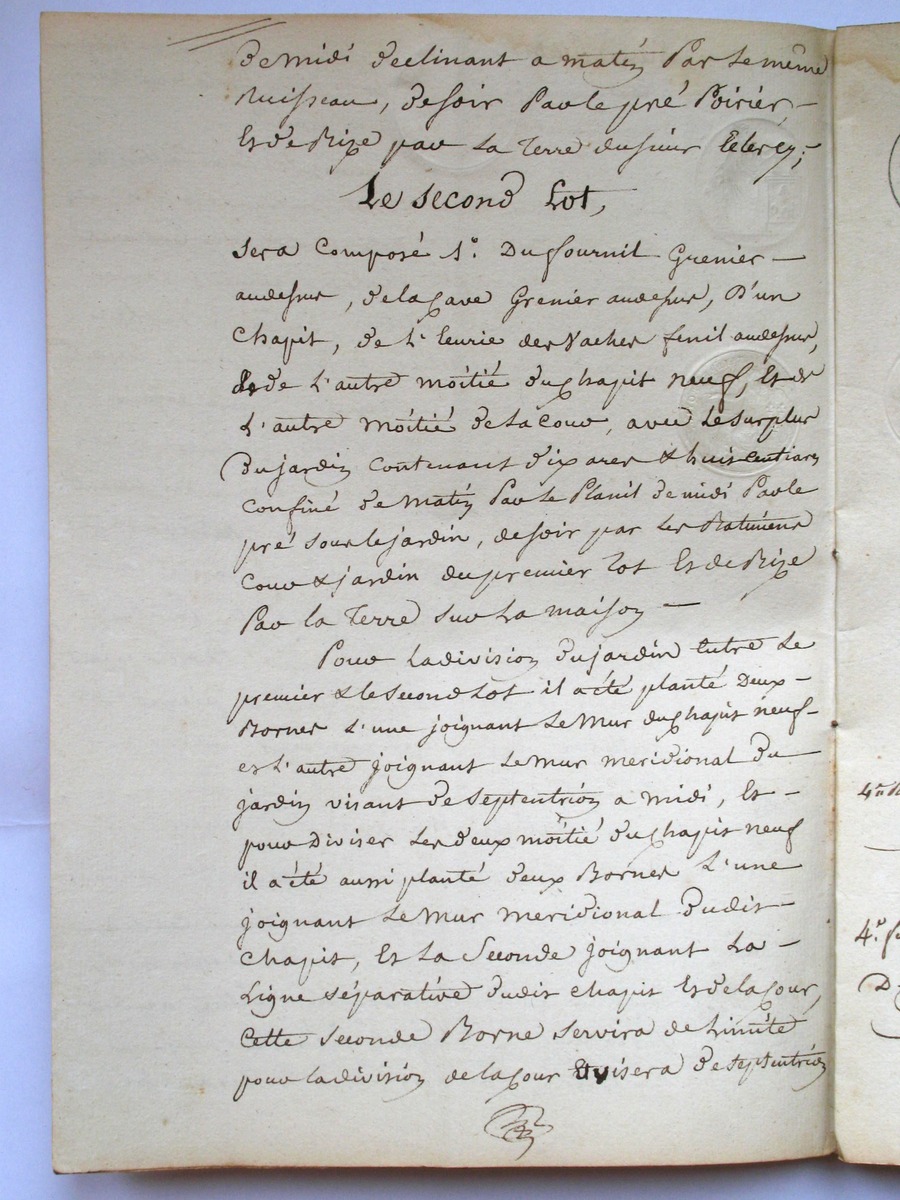 de midi declinant a matin Par Le même
Ruisseau, de soir Par le pré Poirier, –
Et de Bize par La Terre du sieur Leclercq;
Le second Lot,
sera Composé 1º. Du fournil Grenier –
audessus, de la Cave Grenier audessus, D'un
Chapit, de L'Ecurie des Vaches fenil audessus,
de L'autre moitié du Chapit neuf, Et de
L'autre moitié de La Cour, avec Le surplus
Du jardin Contenant dix ares & huit centiares
Confiné de matin Par Le Planil de midi Par le
pré sous le jardin, de soir par Les Batimens
Cour & jardin du premier Lot Et de Bize
Par la Terre sur La maison –
Pour La division du jardin Entre Le
premier & le second Lot il a été planté Deux –
Bornes L'une joignant Le Mur du Chapit neuf –
et L'autre joignant Le mur meridional Du
jardin visant de septentrion a midi, Et –
pour Diviser Les deux moitié du Chapit neuf
il a été aussi planté deux Bornes L'une
joignant Le Mur meridional Dudit –
Chapit, Et La seconde joignant La –
Ligne séparative dudit Chapit Et de la Cour,
Cette seconde Borne servira de Limite
pour La division de la Cour Et visera de septentrion
4.º
D